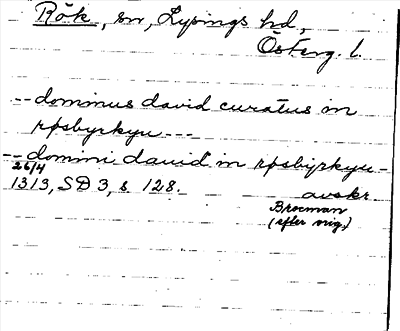 Rök, sn, Lysings hd,
Österg. l.
-- dominus david curatus in
røsbyrkyu ---
-- domini dauid in røsbyrkyu -
26/4
1313, SD 3, s. 128. avskr.
Brocman
(efter orig.)